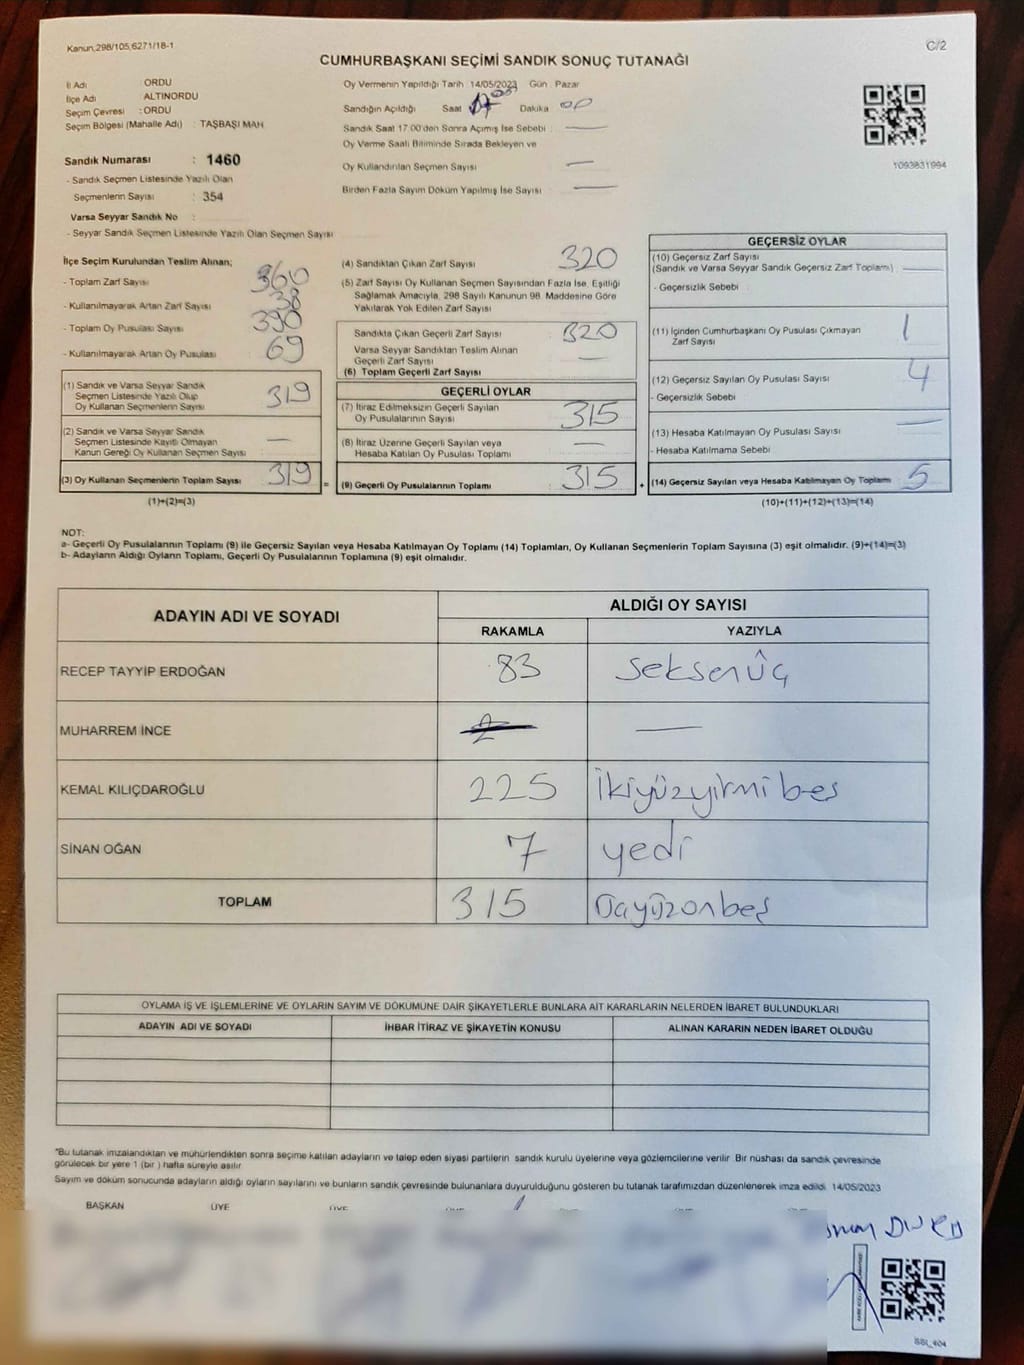 Kanun,298/105,6271/18-1
C/2
CUMHURBAŞKANI SEÇİMİ SANDIK SONUÇ TUTANAĞI
İl Adı ORDU
İlçe Adı ALTINORDU
Seçim Çevresi : ORDU
Seçim Bölgesi (Mahalle Adı) : TAŞBAŞI MAH
Sandık Numarası : 1460
- Sandık Seçmen Listesinde Yazılı Olan
Seçmenlerin Sayısı : 354
Varsa Seyyar Sandık No :
- Seyyar Sandık Seçmen Listesinde Yazılı Olan Seçmen Sayısı
Oy Vermenin Yapıldığı Tarih 14/05/2023 Gün Pazar
Sandığın Açıldığı Saat 17 Dakika 00
Sandık Saat 17.00'den Sonra Açımış İse Sebebi : —
Oy Verme Saati Bitiminde Sırada Bekleyen ve
Oy Kullandırılan Seçmen Sayısı : —
Birden Fazla Sayım Döküm Yapılmış İse Sayısı : —
1093831994
İlçe Seçim Kurulundan Teslim Alınan;
- Toplam Zarf Sayısı : 360
- Kullanılmayarak Artan Zarf Sayısı : 38
- Toplam Oy Pusulası Sayısı : 390
- Kullanılmayarak Artan Oy Pusulası : 69
(1) Sandık ve Varsa Seyyar Sandık
Seçmen Listesinde Yazılı Olup
Oy Kullanan Seçmenlerin Sayısı : 319
(2) Sandık ve Varsa Seyyar Sandık
Seçmen Listesinde Kayıtlı Olmayan
Kanun Gereği Oy Kullanan Seçmen Sayısı : —
(3) Oy Kullanan Seçmenlerin Toplam Sayısı : 319 =
(1)+(2)=(3)
(4) Sandıktan Çıkan Zarf Sayısı : 320
(5) Zarf Sayısı Oy Kullanan Seçmen Sayısından Fazla İse, Eşitliği
Sağlamak Amacıyla, 298 Sayılı Kanunun 98. Maddesine Göre
Yakılarak Yok Edilen Zarf Sayısı :
Sandıkta Çıkan Geçerli Zarf Sayısı : 320
Varsa Seyyar Sandıktan Teslim Alınan
Geçerli Zarf Sayısı : —
(6) Toplam Geçerli Zarf Sayısı
GEÇERLİ OYLAR
(7) İtiraz Edilmeksizin Geçerli Sayılan
Oy Pusulalarının Sayısı : 315
(8) İtiraz Üzerine Geçerli Sayılan veya
Hesaba Katılan Oy Pusulası Toplamı : —
(9) Geçerli Oy Pusulalarının Toplamı : 315 +
GEÇERSİZ OYLAR
(10) Geçersiz Zarf Sayısı
(Sandık ve Varsa Seyyar Sandık Geçersiz Zarf Toplamı) : —
- Geçersizlik Sebebi :
(11) İçinden Cumhurbaşkanı Oy Pusulası Çıkmayan
Zarf Sayısı : 1
(12) Geçersiz Sayılan Oy Pusulası Sayısı : 4
- Geçersizlik Sebebi
(13) Hesaba Katılmayan Oy Pusulası Sayısı : —
- Hesaba Katılmama Sebebi
(14) Geçersiz Sayılan veya Hesaba Katılmayan Oy Toplamı : 5
(10)+(11)+(12)+(13)=(14)
NOT:
a- Geçerli Oy Pusulalarının Toplamı (9) ile Geçersiz Sayılan veya Hesaba Katılmayan Oy Toplamı (14) Toplamları, Oy Kullanan Seçmenlerin Toplam Sayısına (3) eşit olmalıdır. (9)+(14)=(3)
b- Adayların Aldığı Oyların Toplamı, Geçerli Oy Pusulalarının Toplamına (9) eşit olmalıdır.
ADAYIN ADI VE SOYADI ALDIĞI OY SAYISI
RAKAMLA YAZIYLA
RECEP TAYYİP ERDOĞAN 83 seksenüç
MUHARREM İNCE 2 —
KEMAL KILIÇDAROĞLU 225 ikiyüzyirmibeş
SİNAN OĞAN 7 yedi
TOPLAM 315 üçyüzonbeş
OYLAMA İŞ VE İŞLEMLERİNE VE OYLARIN SAYIM VE DÖKÜMÜNE DAİR ŞİKAYETLERLE BUNLARA AİT KARARLARIN NELERDEN İBARET BULUNDUKLARI
ADAYIN ADI VE SOYADI İHBAR İTİRAZ VE ŞİKAYETİN KONUSU ALINAN KARARIN NEDEN İBARET OLDUĞU
*Bu tutanak imzalandıktan ve mühürlendikten sonra seçime katılan adayların ve talep eden siyasi partilerin sandık kurulu üyelerine veya gözlemcilerine verilir. Bir nüshası da sandık çevresinde
görülecek bir yere 1 (bir) hafta süreyle asılır
Sayım ve döküm sonucunda adayların aldığı oyların sayılarını ve bunların sandık çevresinde bulunanlara duyurulduğunu gösteren bu tutanak tarafımızdan düzenlenerek imza edildi. 14/05/2023
BAŞKAN ÜYE ÜYE ÜYE